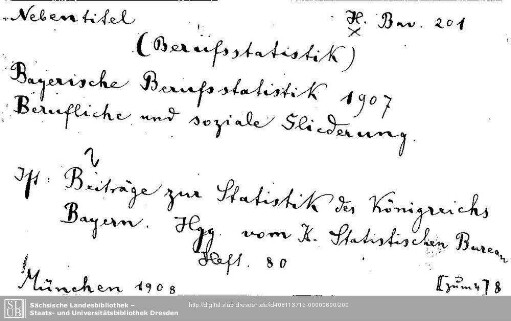 Nebentitel
H. Bav. 201
(Berufsstatistik)
Bayerische Berufsstatistik 1907
Berufliche und soziale Gliederung.
Ist: Beiträge zur Statistik des Königreichs
Bayern. Hgg. vom K. Statistischen Bureau
Heft. 80
München 1908
8
Sächsische Landesbibliothek –
Staats- und Universitätsbibliothek Dresden